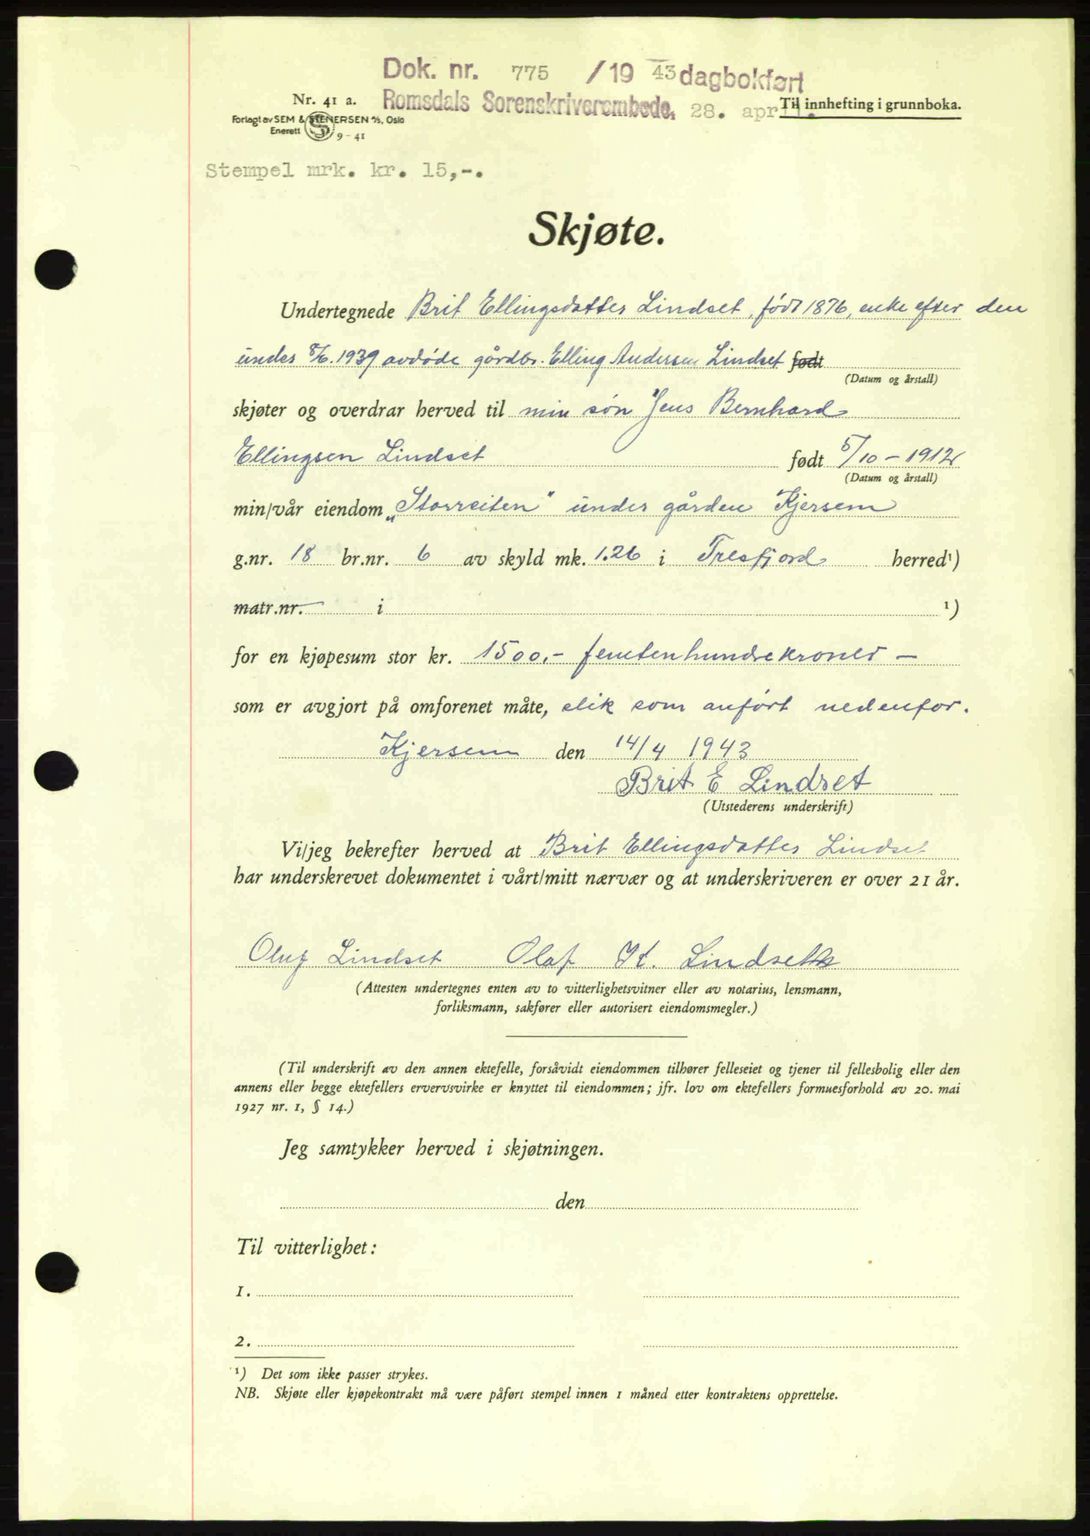 Dok. nr. 775 /19 43 dagbokført
Nr. 41 a. Romsdals Sorenskriverembede, 28. april. Til innhefting i grunnboka.
Forlagt av SEM & STENERSEN A/S, Oslo
Enerett S 9 - 41
Stempel mrk. kr. 15,-.
Skjøte.
Undertegnede Brit Ellingsdatter Lindset, født 1876, enke efter den
under 8/6. 1939 avdøde gårdbr. Elling Andersen Lindset født
(Datum og årstall)
skjøter og overdrar herved til min søn Jens Bernhard
Ellingsen Lindset født 5/10 - 1912
(Datum og årstall)
min/vår eiendom „Storreiten" under gården Kjersem
g.nr. 18 br.nr. 6 av skyld mk. 1.26 i Tresfjord herred¹)
matr.nr. i ¹)
for en kjøpesum stor kr. 1500,- femtenhundrekroner —
som er avgjort på omforenet måte, slik som anført nedenfor.
Kjersem den 14/4 1943
Brit E Lindset
(Utstederens underskrift)
Vi/jeg bekrefter herved at Brit Ellingsdatter Lindset
har underskrevet dokumentet i vårt/mitt nærvær og at underskriveren er over 21 år.
Oluf Lindset Olaf K. Lindseth
(Attesten undertegnes enten av to vitterlighetsvitner eller av notarius, lensmann,
forliksmann, sakfører eller autorisert eiendomsmegler.)
(Til underskrift av den annen ektefelle, forsåvidt eiendommen tilhører felleseiet og tjener til fellesbolig eller den
annens eller begge ektefellers ervervsvirke er knyttet til eiendommen; jfr. lov om ektefellers formuesforhold av 20. mai
1927 nr. 1, § 14.)
Jeg samtykker herved i skjøtningen.
den
Til vitterlighet:
1.
2.
¹) Det som ikke passer strykes.
NB. Skjøte eller kjøpekontrakt må være påført stempel innen 1 måned etter kontraktens opprettelse.